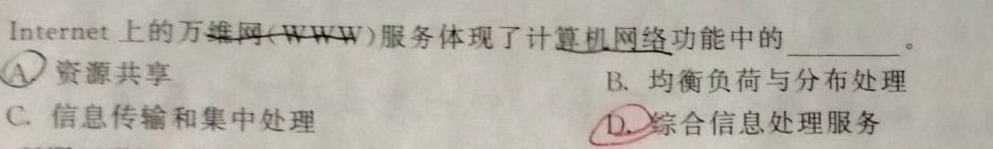 Internet 上的万维网(WWW)服务体现了计算机网络功能中的________。
A. 资源共享
B. 均衡负荷与分布处理
C. 信息传输和集中处理
D. 综合信息处理服务